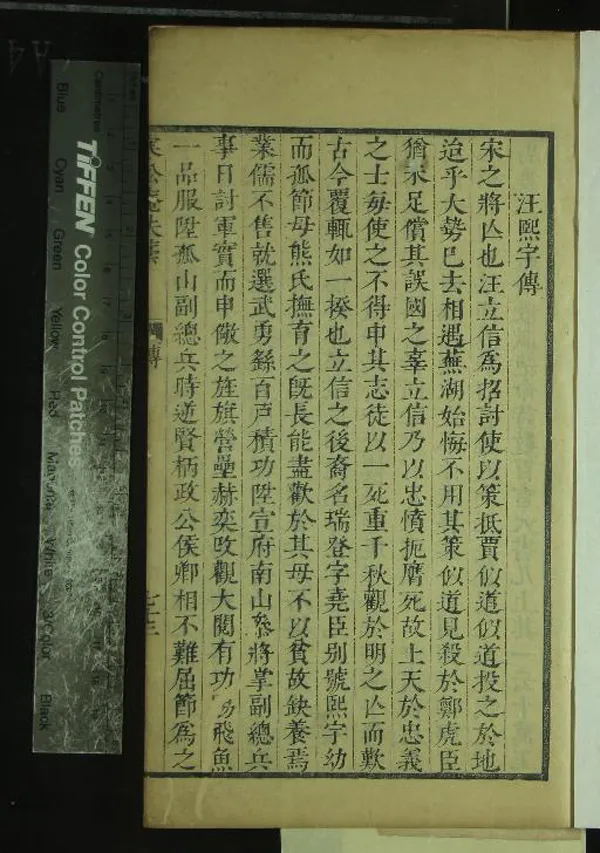 汪熙宇傳
宋之將亾也汪立信為招討使以策抵賈似道似道投之於地
迨乎大勢已去相遇蕪湖始悔不用其策似道見殺於鄭虎臣
猶不足償其誤國之辜立信乃以忠憤扼膺死故上天於忠義
之士每使之不得申其志徒以一死重千秋觀於明之亾而歎
古今覆輒如一揆也立信之後裔名瑞登字堯臣別號熙宇幼
而孤節母熊氏撫育之既長能盡歡於其母不以貧故缺養焉
業儒不售就選武勇繇百戶積功陞宣府南山參將掌副總兵
事日討軍實而申儆之旌旗營壘赫奕改觀大閱有功 飛魚
一品服陞孤山副總兵時逆賢柄政公侯卿相不難屈節為之
傳
七三
TIFFEN Color Control Patches
Centimetres
Blue
Cyan
Green
Yellow
Red
Magenta
White
3/Color
Black